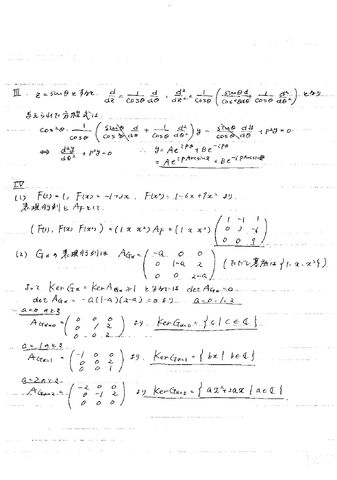 III. z=sinθとすると d/dz = 1/cosθ d/dθ, d²/dz² = 1/cosθ ( sinθ/cos²θ d/dθ + 1/cosθ d²/dθ² ) となり
与えられた方程式は、
cos²θ · 1/cosθ ( sinθ/cos²θ d/dθ + 1/cosθ d²/dθ² ) y − sinθ/cosθ dy/dθ + p²y = 0
⇔ d²y/dθ² + p²y = 0 ∴ y = Ae^{ipθ} + Be^{-ipθ}
= Ae^{ip arcsin z} + Be^{-ip arcsin z}
IV
(1) F(1)=1, F(x)=-1+3x, F(x²)=1-6x+9x² より
表現行列を A_F として、
(F(1), F(x) F(x²)) = (1 x x²) A_F = (1 x x²) ( 1 -1 1 / 0 3 -6 / 0 0 9 )
(2) Gaの表現行列は A_{Ga} = ( -a 0 0 / 0 1-a 2 / 0 0 2-a ) (ただし基底は{1, x, x²})
det A_{Ga} = -a(1-a)(2-a) = 0 より a=0, 1, 2
a=0のとき
A_{Ga=0} = ( 0 0 0 / 0 1 2 / 0 0 2 ) より Ker G_{a=0} = { c | c∈ℂ }
a=1のとき
A_{Ga=1} = ( -1 0 0 / 0 0 2 / 0 0 1 ) より Ker G_{a=1} = { bx | b∈ℂ }
a=2のとき
A_{Ga=2} = ( -2 0 0 / 0 -1 2 / 0 0 0 ) より Ker G_{a=2} = { ax²+2ax | a∈ℂ }